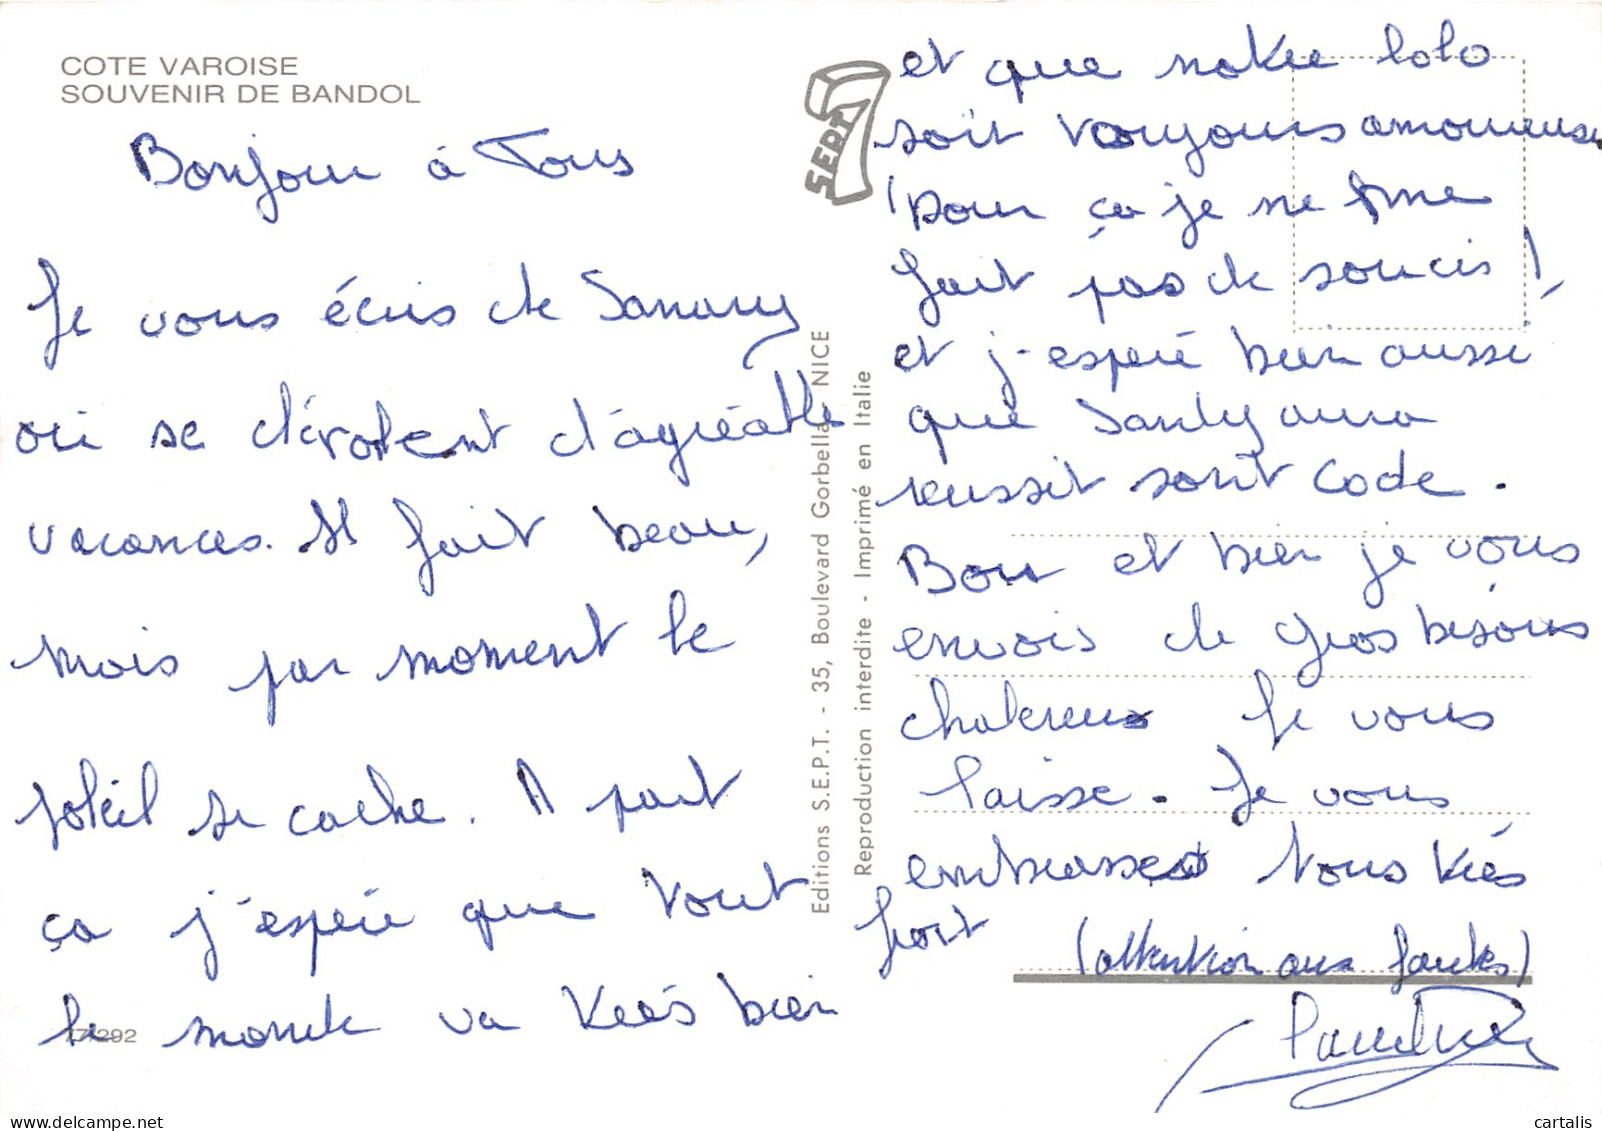 COTE VAROISE
SOUVENIR DE BANDOL
Bonjour à Tous
Je vous écris de Sanary
où se dérolent d'agréable
vacances. Il fait beau,
mais par moment le
soleil se cache. A part
ça j'espère que tout
le monde va très bien
77-292
SEPT 7
Editions S.E.P.T. - 35, Boulevard Gorbella, NICE
Reproduction interdite - Imprimé en Italie
et que notre lolo
soit toujours amoureuse
pour ça je ne me
fait pas de soucis !
et j'espère bien aussi
que Sandy aura
reussit sont code.
Bon et bien je vous
envois de gros bisous
chalereux Je vous
laisse. Je vous
embrasse tous très
fort
(attention aux fautes)
cartalis